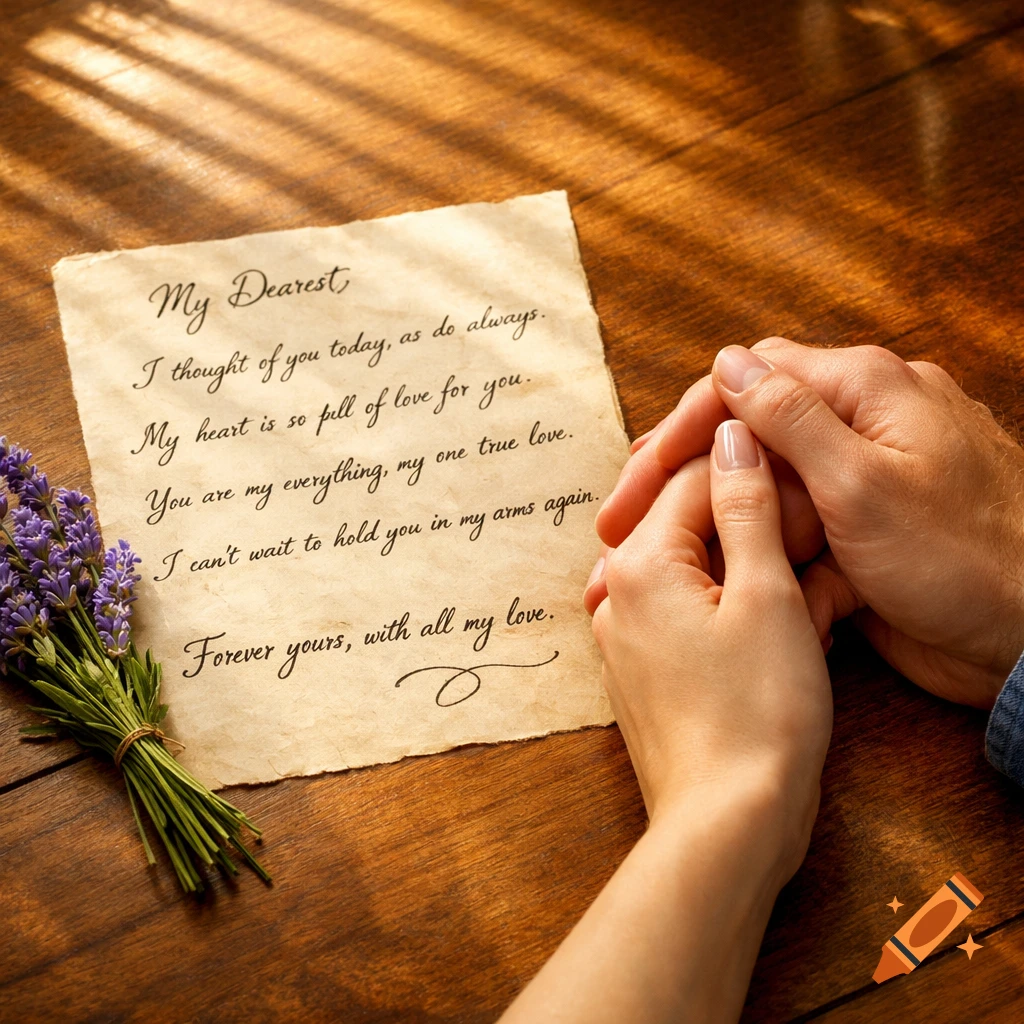 My Dearest,
I thought of you today, as do always.
My heart is so pull of love for you.
You are my everything, my one true love.
I can't wait to hold you in my arms again.
Forever yours, with all my love.